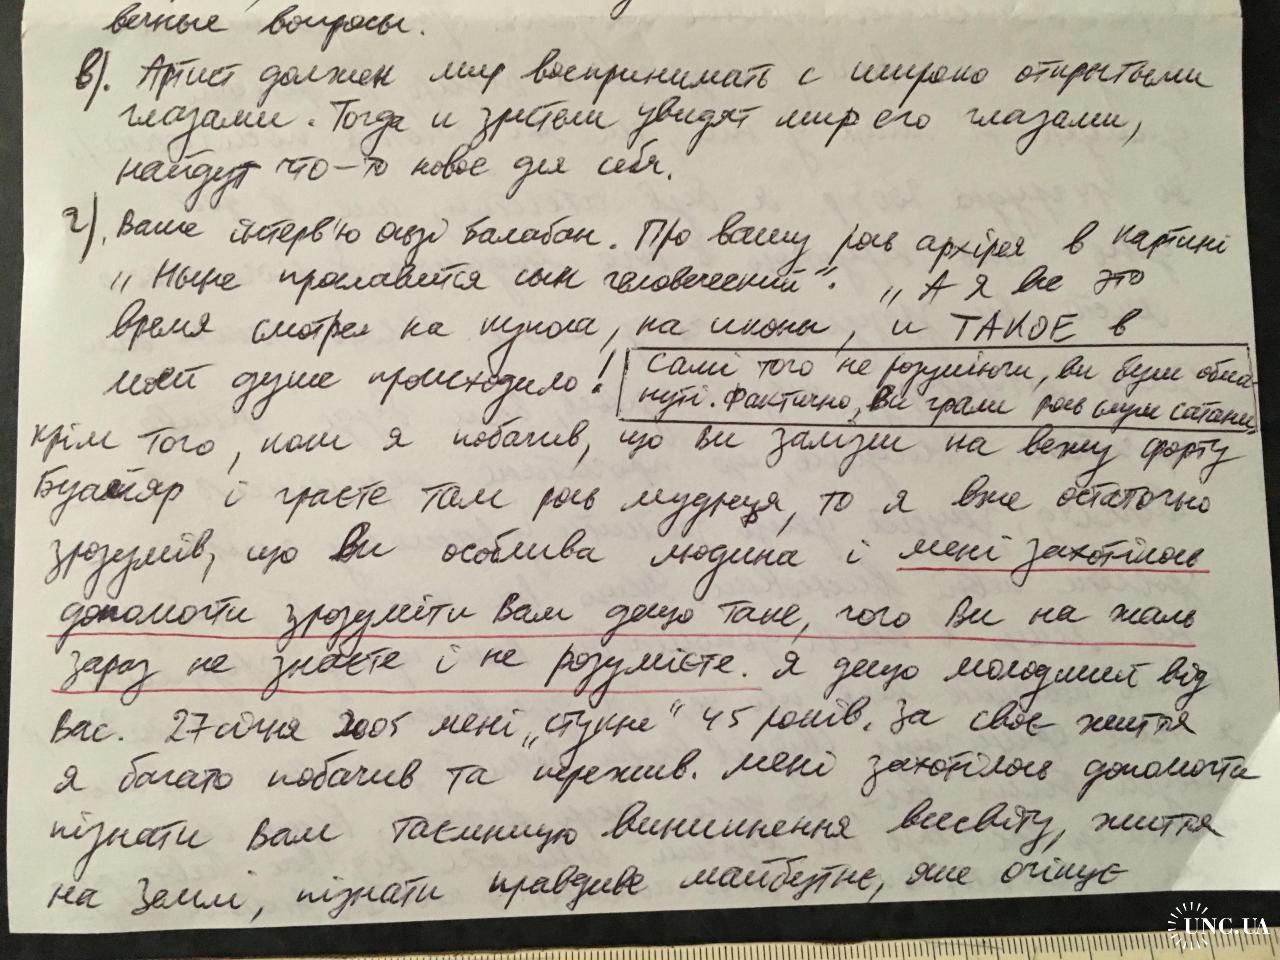 вечные вопросы.
в). Артист должен мир воспринимать с широко открытыми
глазами. Тогда и зрители увидят мир его глазами,
найдут что-то новое для себя.
г). Ваше інтерв'ю Балабан. Про вашу роль архірея в картині
„Ныне прославится сын человеческий“. „А я все это
время смотрел на купола, на иконы, и ТАКОЕ в
моей душе происходило!
Самі того не розуміючи, ви були обма-
нуті. Фактично, Ви грали роль слуги сатани.
Крім того, коли я побачив, що Ви залізли на вежу форту
Буаяр і граєте там роль мудреця, то я вже остаточно
зрозумів, що Ви особлива людина і мені захотілось
допомогти зрозуміти Вам дещо таке, чого Ви на жаль
зараз не знаєте і не розумієте. Я дещо молодший від
Вас. 27 січня 2005 мені „стукне“ 45 років. За своє життя
я багато побачив та пережив. Мені захотілось допомогти
пізнати Вам таємницю виникнення всесвіту, життя
на Землі, пізнати правдиве майбутнє, яке очікує
UNC.UA